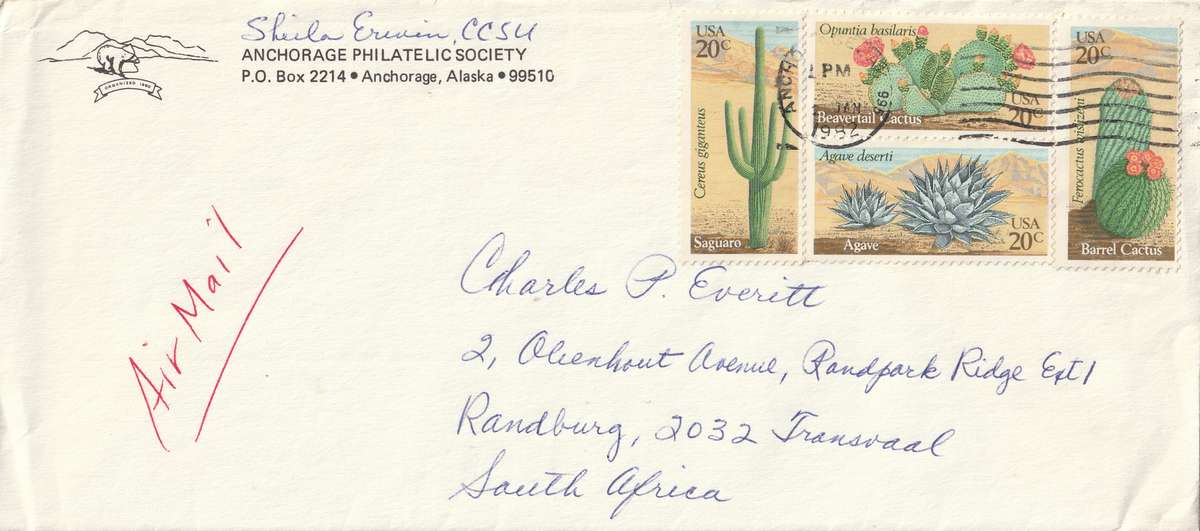 Sheila Erwin, CCSU
ANCHORAGE PHILATELIC SOCIETY
P.O. Box 2214 • Anchorage, Alaska • 99510
ORGANIZED
USA
20c
Cereus giganteus
Saguaro
Opuntia basilaris
USA
20c
Beavertail Cactus
Agave deserti
USA
20c
Agave
USA
20c
Ferocactus wislizeni
Barrel Cactus
PM
1982
995
Air Mail
Charles P. Everitt
2, Olienhout Avenue, Randpark Ridge Ext 1
Randburg, 2032 Transvaal
South Africa